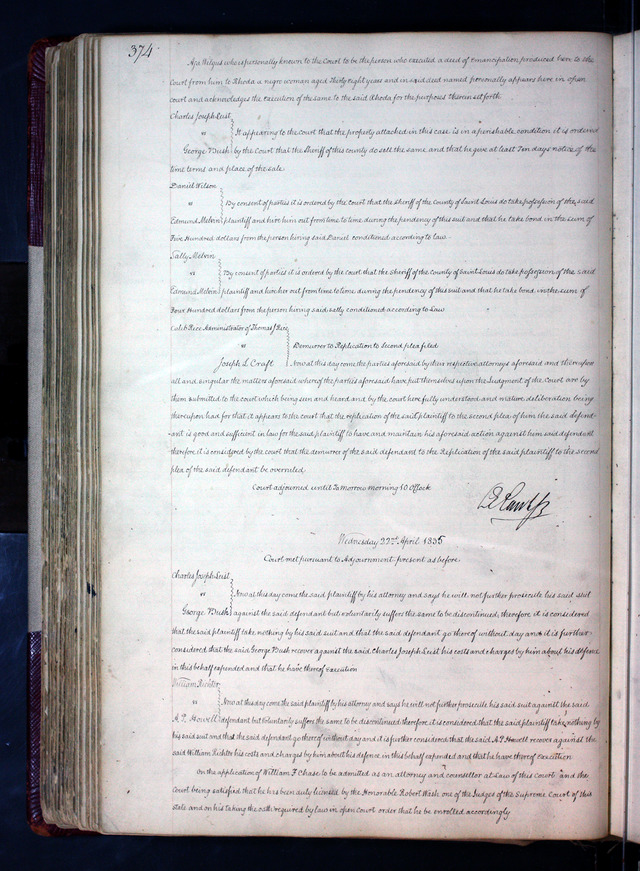 374
Asa Wilgus who is personally known to the Court to be the person who executed a deed of emancipation produced here to the
Court from him to Rhoda a negro woman aged Thirty eight years and in said deed named personally appears here in open
court and acknowledges the execution of the same to the said Rhoda for the purposes therein set forth
Charles Joseph Leist
vs It appearing to the Court that the property attached in this case is in a perishable condition it is ordered
George Bush by the Court that the Sheriff of this county do sell the same and that he give at least Ten days notice of the
time terms and place of the sale
Daniel Wilson
vs By consent of parties it is ordered by the court that the sheriff of the County of Saint Louis do take possession of the said
Edmund Melvin plaintiff and hire him out from time to time during the pendency of this suit and that he take bond in the sum of
Five Hundred dollars from the person hiring said Daniel conditioned according to law
Sally Melvin
vs By consent of parties it is ordered by the court that the sheriff of the county of Saint Louis do take possession of the said
Edmund Melvin plaintiff and hire her out from time to time during the pendency of this suit and that he take bond in the sum of
Four Hundred dollars from the person hiring said Sally conditioned according to Law
Caleb Rice Administrator of Thomas J Rice
vs Demurrer to Replication to Second plea filed
Joseph L Craft Now at this day come the parties aforesaid by their respective attorneys aforesaid and thereupon
all and singular the matters aforesaid whereof the parties aforesaid have put themselves upon the Judgment of the Court are by
them submitted to the court which being seen and heard and by the court here fully understood and mature deliberation being
thereupon had for that it appears to the court that the replication of the said plaintiff to the second plea of him the said defend-
ant is good and sufficient in law for the said plaintiff to have and maintain his aforesaid action against him said defendant
therefore it is considered by the court that the demurrer of the said defendant to the Replication of the said plaintiff to the second
plea of the said defendant be overruled
Court adjourned until To morrow morning 10 O'Clock
Wednesday 22nd April 1835
Court met pursuant to Adjournment present as before
Charles Joseph Leist
vs Now at this day come the said plaintiff by his attorney and says he will not further prosecute his said suit
George Bush against the said defendant but voluntarily suffers the same to be discontinued, therefore it is considered
that the said plaintiff take nothing by his said suit and that the said defendant go thereof without day and it is further
considered that the said George Bush recover against the said Charles Joseph Leist his costs and charges by him about his defence
in this behalf expended and that he have thereof Execution
William Richter
vs Now at this day come the said plaintiff by his attorney and says he will not further prosecute his said suit against the said
A. P. Howell defendant but voluntarily suffers the same to be discontinued therefore it is considered that the said plaintiff take nothing by
his said suit and that the said defendant go thereof without day and it is further considered that the said A P Howell recover against the
said William Richter his costs and charges by him about his defence in this behalf expended and that he have thereof execution
On the application of William J Chase to be admitted as an attorney and counsellor at Law of this Court and the
Court being satisfied that he has been duly licensed by the Honorable Robert Wash one of the Judges of the Supreme Court of this
state and on his taking the oath required by law in open Court order that he be enrolled accordingly